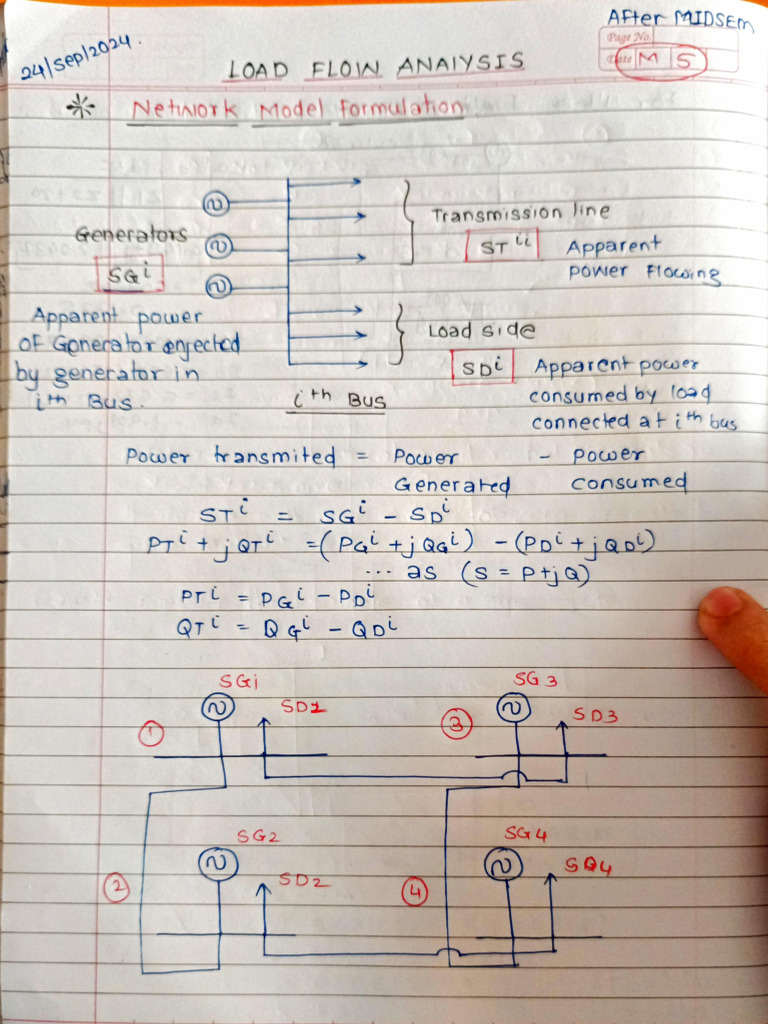 After MIDSEM
Page No.
Date M 5
24/Sep/2024.
LOAD FLOW ANAlYSIS
* Network Model Formulation
Generators
SGⁱ
Apparent power
of Generator enjected
by generator in
iᵗʰ Bus.
iᵗʰ Bus
Transmission line
STⁱⁱ Apparent
power Flowing
Load side
SDⁱ Apparent power
consumed by load
connected at iᵗʰ bus
Power transmited = Power - power
Generated consumed
STⁱ = SGⁱ - SDⁱ
PTⁱ + jQTⁱ = (PGⁱ + jQGⁱ) - (PDⁱ + jQDⁱ)
... as (S = P+jQ)
PTⁱ = PGⁱ - PDⁱ
QTⁱ = QGⁱ - QDⁱ
SGi
SD1
1
SG3
SD3
3
SG2
SD2
2
SG4
SQ4
4